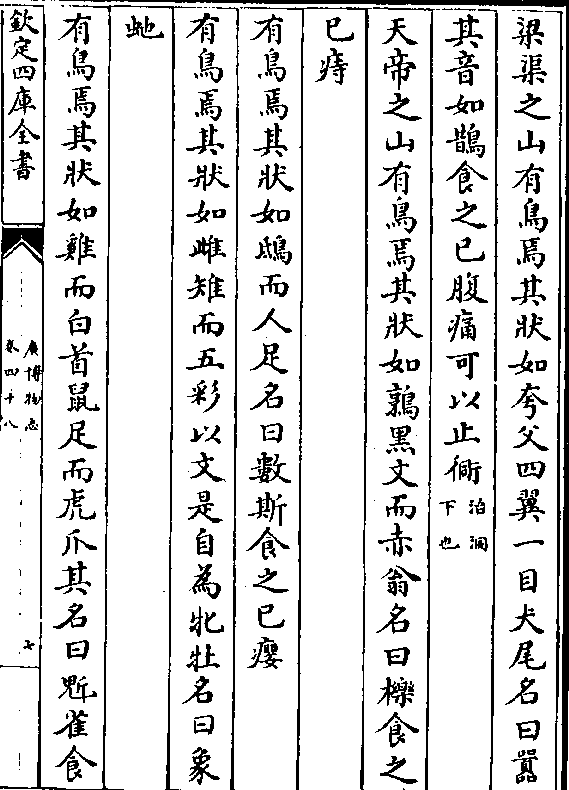 梁渠之山有鳥焉其狀如夸父四翼一目犬尾名曰嚻
其音如鵲食之已腹痛可以止衕治洞下也
天帝之山有鳥焉其狀如鶉黑文而赤翁名曰櫟食之
已痔
有鳥焉其狀如鴟而人足名曰數斯食之已癭
有鳥焉其狀如雌雉而五彩以文是自為牝牡名曰象
虵
有鳥焉其狀如雞而白首鼠足而虎爪其名曰鬿雀食
欽定四庫全書
廣博物志
卷四十八
七